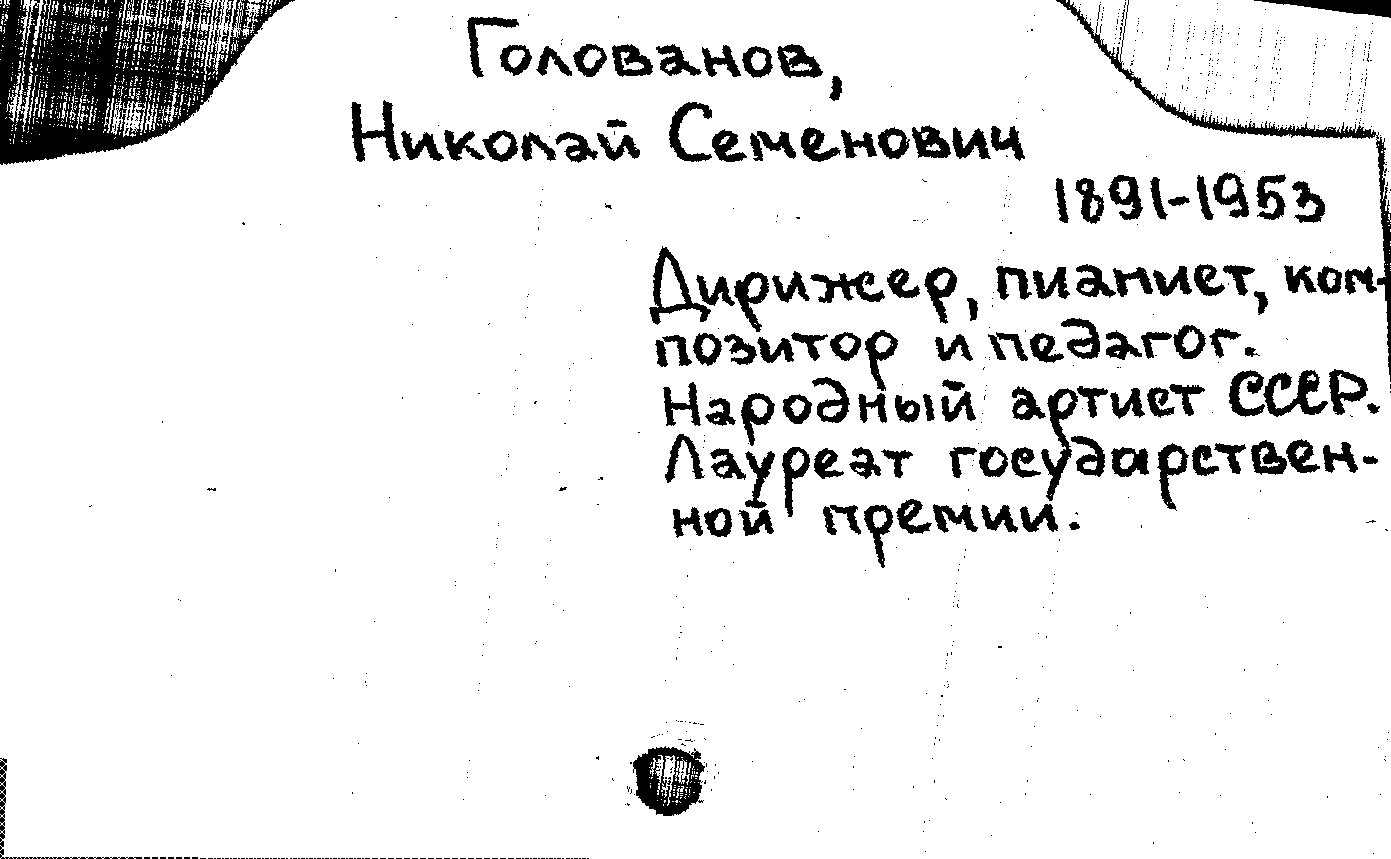 Голованов,
Николай Семенович
1891-1953
Дирижер, пианист, ком-
позитор и педагог.
Народный артист СССР.
Лауреат государствен-
ной премии.